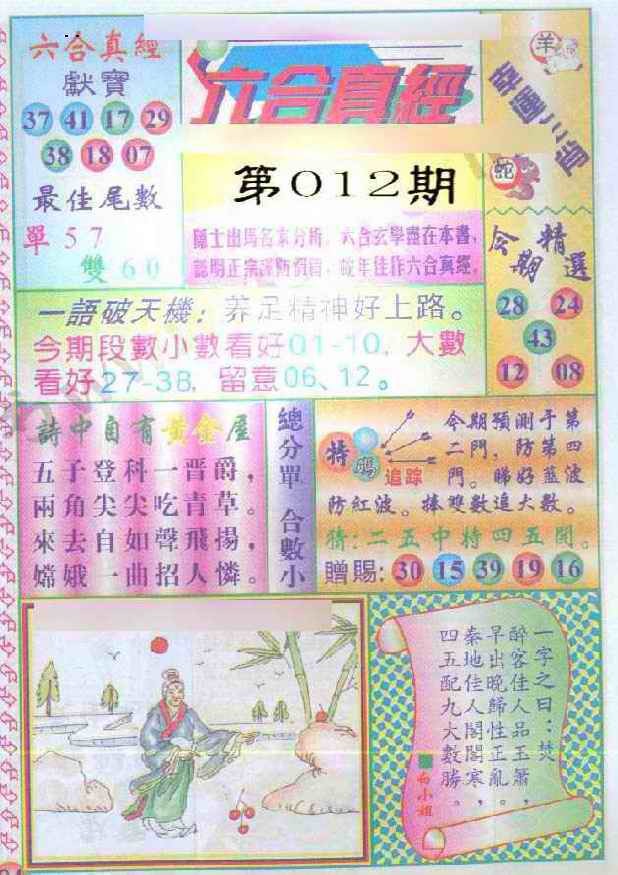 六合真經
獻寶
37 41 17 29
38 18 07
最佳尾數
單 5 7
雙 6 0
六合真經
第012期
羊
蛇
今期精選
28 24
43
12 08
一語破天機：养足精神好上路。
今期段數小數看好01-10，大數
看好27-38，留意06、12。
詩中自有黃金屋
五子登科一晋爵，
兩角尖尖吃青草。
來去自如聲飛揚，
嫦娥一曲招人憐。
總分單 合數小
特碼
追踪
今期預測于第
二門，防第四
門。睇好藍波
防紅波。捧雙數追大數。
猜：二五中特四五開。
贈賜：30 15 39 19 16
一字之曰：焚
醉客佳人品玉簫，
早出晚歸性正亂。
秦地佳人閣閣寒，
四五配九大數勝。
白小姐